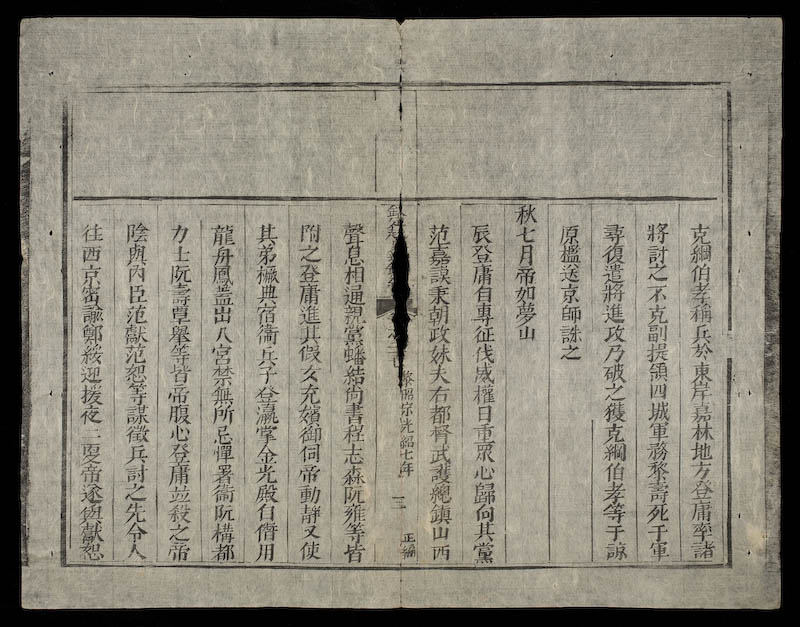 克綱伯孝稱兵於東岸嘉林地方登庸率諸
將討之不克副提領四城軍務黎壽死于軍
尋復遣將進攻乃破之獲克綱伯孝等于諒
原檻送京師誅之
秋七月帝如夢山
辰登庸自專征伐威權日重眾心歸向其黨
范嘉謨秉朝政妹夫右都督武護總鎮山西
欽定越史 黎昭宗光紹七年 三 正編
聲息相通親黨蟠結尚書程志森阮雍等皆
附之登庸進其假女充嬪御伺帝動靜又使
其弟橛典宿衛兵子登瀛掌金光殿自僭用
龍舟鳳蓋出入宮禁無所忌憚署衛阮構都
力士阮壽覃舉等皆帝腹心登庸並殺之帝
陰與內臣范獻范恕等謀徵兵討之先令人
往西京密諭鄭綏迎援夜二更帝遂與獻恕